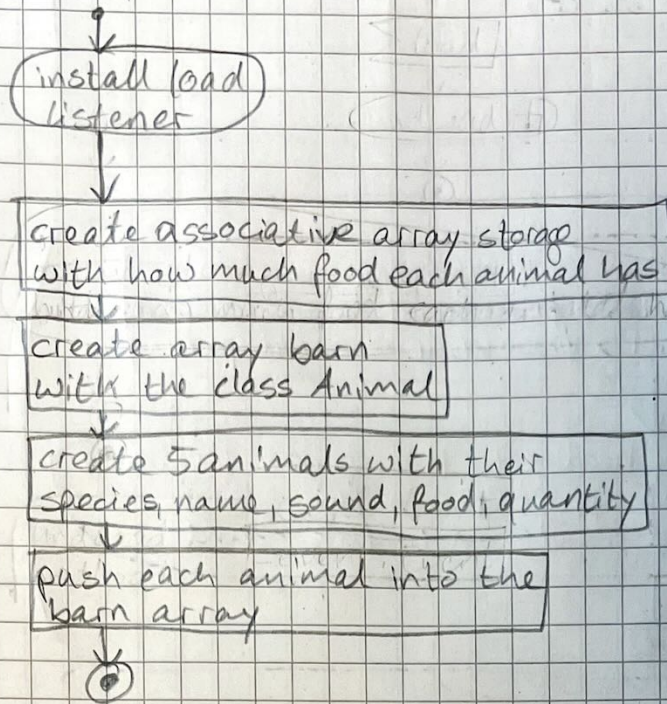 install load
listener
create associative array storage
with how much food each animal has
create array barn
with the class Animal
create 5 animals with their
species, name, sound, food, quantity
push each animal into the
barn array